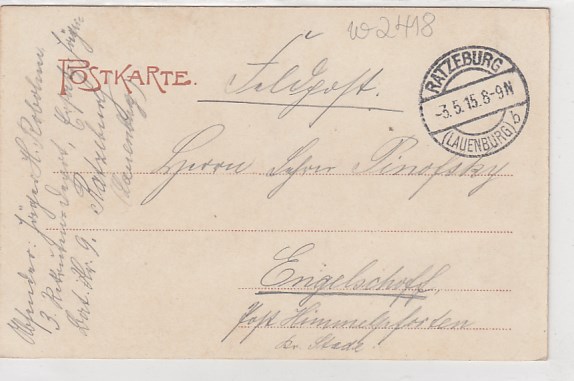 w2418
POSTKARTE.
Feldpost.
RATZEBURG
-3.5.15.8-9N
(LAUENBURG) b
Herrn Lehrer Pinofsky
Engelschoff
Post Himmelpforten
b. Stade
Absender: Jäger H.
13. Rekruten Depot, Ersatz Jäger
Batl. Nr. 9. Ratzeburg
Lauenburg